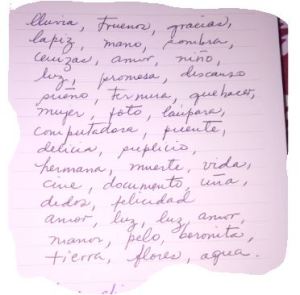 lluvia, truenos, gracias,
lapiz, mano, sombra,
cenizas, amor, niño,
luz, promesa, descanso
sueño, ternura, quehacer,
mujer, foto, lámpara,
computadora, puente,
delicia, suplicio,
hermana, muerte, vida,
cine, documento, uña,
dedos, felicidad
amor, luz, luz, amor,
manos, pelo, boronita,
tierra, flores, agua.